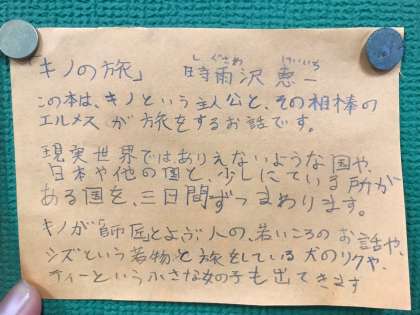 しぐさわ けいいち
「キノの旅」 時雨沢 恵一
この本は、キノという主人公と、その相棒の
エルメスが旅をするお話です。
現実世界ではありえないような国や、
日本や他の国と、少しにている所が
ある国を、三日間ずつまわります。
キノが「師匠」とよぶ人の、若いころのお話や、
シズという若物と旅をしている犬のリクや、
ティーという小さな女の子も出てきます